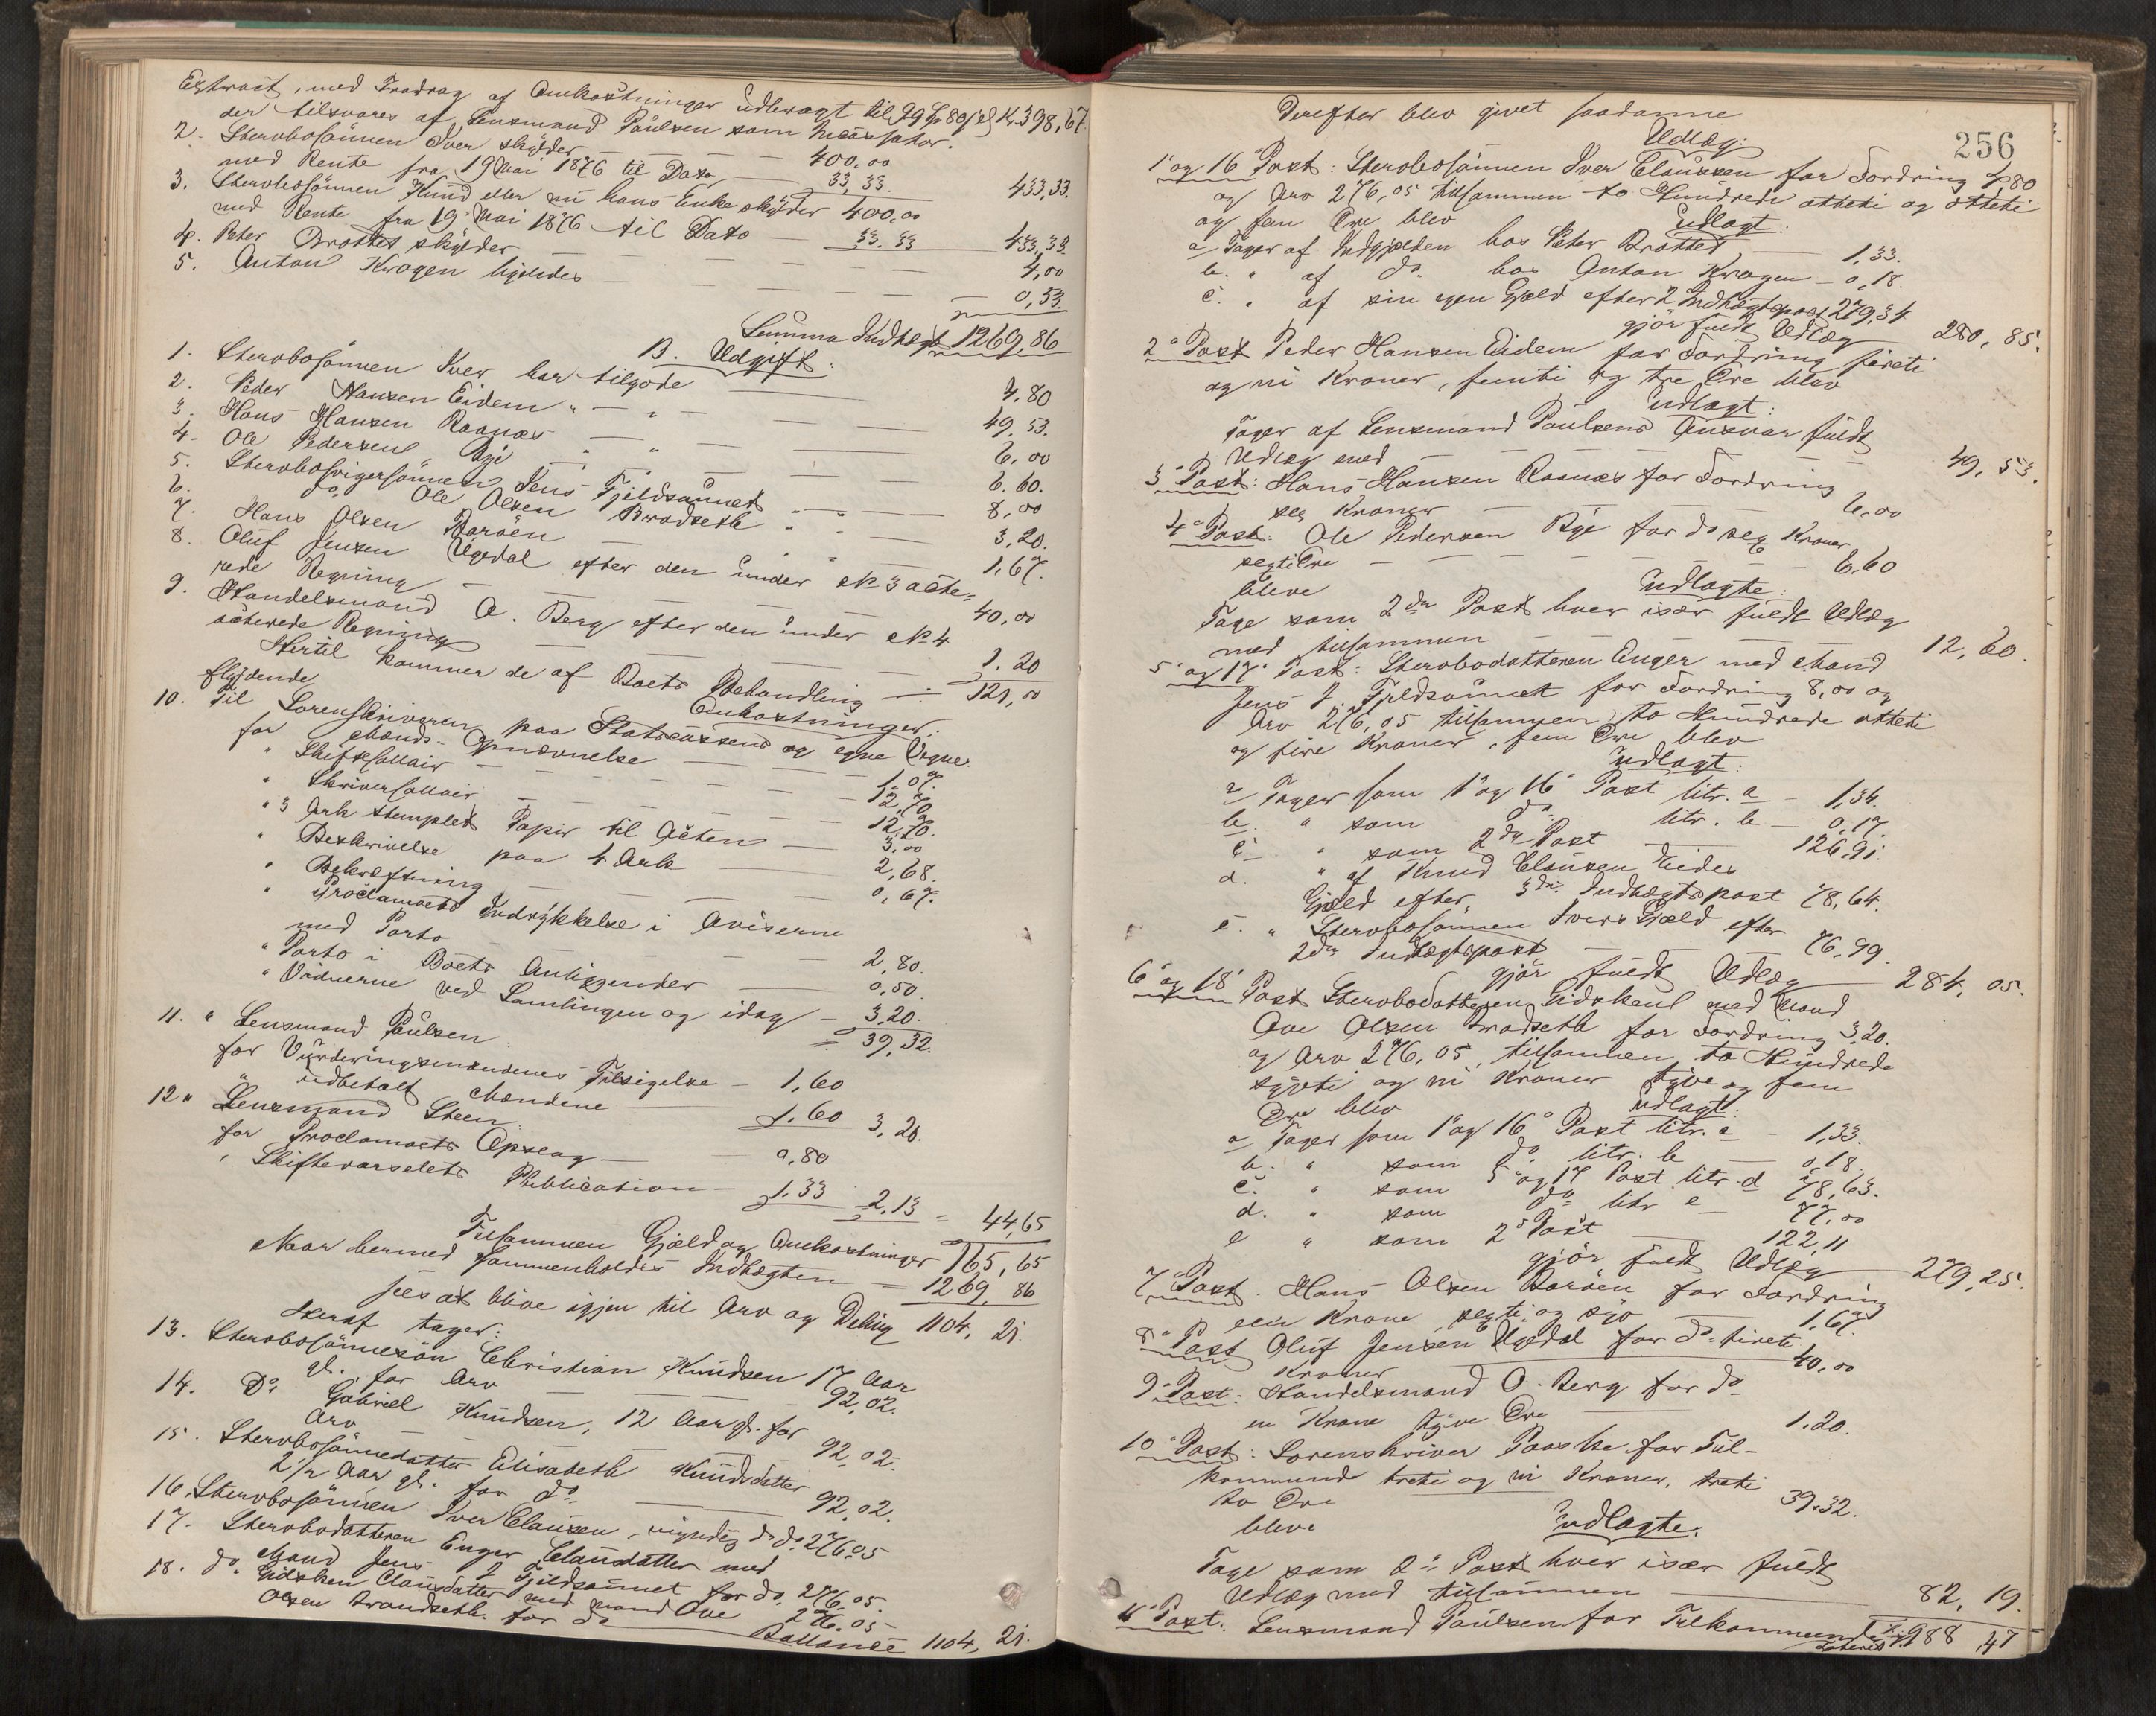 Extract, med Fradrag af Omkostninger udbragt til Kr. 398,67.
der tilsvares af Lensmand Paulsen som Incassator.
2. Sterbosønnen Iver skylder — 400,00
med Rente fra 19 Mai 1876 til Dato 33,33. 433,33.
3. Sterbosønnen Knud eller nu hans Enke skylder 400,00
med Rente fra 19 Mai 1876 til Dato — 33.33 433,33.
4. Peter Brottet skylder — 4,00
5. Anton Kragen ligeledes — 0,53.
Summa Indtægt 1269,86
B. Udgift:
1. Sterbosønnen Iver har tilgode 4.80
2. Peder Hansen Eidem " — " 49,53.
3. Hans Hansen Raanæs — " 6,00
4. Ole Pedersen Bye " " 6.60.
5. Sterbosvigersønnen Jens Fjeldsaunet — 8,00
6. do Ole Olsen Brodseth " " — 3,20.
7. Hans Olsen Barøen — " 1,67.
8. Oluf Jensen Ugedal efter den under № 3 acte-
rede Regning — 40,00
9. Handelsmand O. Berg efter den under № 4
acterede Regning — 1.20
121,00
Hertil kommer de af Boets Behandling
flydende Omkostninger:
10. Til Sorenskriveren paa Statscassens og egne Vegne.
for Mænds Opnævnelse — 1.07.
" Skiftesallair — 12,70
" Skriversallair — 12,70.
" 3 Ark stemplet Papir til Acten — 3,00
" Beskrivelse paa 4 Ark 2,68.
" Bekræftning — 0,67.
" Proclamaets Indrykkelse i Aviserne
med Porto — 2,80.
" Porto i Boets Anliggender — 0,50.
" Vidnerne ved Samlingen og idag — 3,20.
= 39,32.
11. " Lensmand Paulsen:
for Vurderingsmændenes Tilsigelse — 1,60
" udbetalt Mændene — 1.60 3,20.
12 " Lensmand Steen:
for Proclamaets Opslag — 0,80
" Skiftevarselets Publication — 1.33 2,13 = 44,65
Tilsammen Gjæld og Omkostninger 165,65
Naar hermed sammenholdes Indtægten — 1269,86
sees at blive igjen til Arv og Deling 1104,21.
Heraf tager:
13. Sterbosønnesøn Christian Knudsen 17 Aar
gl., for Arv — 92,02.
14. Do Gabriel Knudsen, 12 Aar gl. for
Arv — 92,02.
15. Sterbosønnedatter Elisabeth Knudsdatter
2½ Aar gl. for do — 92,02.
16. Sterbosønnen Iver Clausen, myndig do do 276,05
17. Sterbodatteren Enger Clausdatter med
Mand Jens J. Fjeldsaunet for do 276,05.
18. do Gidsken Clausdatter med Mand Ove
Olsen Brandseth for do 276.05
Ballance 1104,21.
256
Derefter blev givet saadanne
Udlæg:
1o og 16o Post: Sterbosønnen Iver Claussen for Fordring 4,80
og Arv 276,05 tilsammen to Hundrede otteti og otteti
og fem Øre blev Udlagt:
a Tager af Indgjælden hos Peter Brottet — 1,33.
b. " af do hos Anton Kragen — 0,18.
c. " af sin egen Gjæld efter 2 Indtægtspost 279,34
gjør fuldt Udlæg 280,85.
2o Post Peder Hansen Eidem for Fordring fireti
og ni Kroner, femti og tre Øre blev
Udlagt:
Tager af Lensmand Paulsens Ansvar fuldt
Udlæg med — 49,53.
3o Post: Hans Hansen Raanæs for Fordring
sex Kroner — 6,00
4o Post: Ole Pedersen Bye for do sex Kroner
sexti Øre — 6,60
bleve Udlagte:
Tage som 2den Post hver især fuldt Udlæg
med tilsammen — 12,60.
5o og 17o Post: Sterbodatteren Enger med Mand
Jens J. Fjeldsaunet for Fordring 8,00 og
Arv 276,05 tilsammen to Hundrede otteti
og fire Kroner, fem Øre blev
Udlagt:
a Tager som 1o og 16o Post litr. a — 1,34.
b. " som do litr. b — 0,17.
c. " som 2den Post — 126,91.
d. " af Knud Clausen Eides
Gjæld efter 3die Indtægtspost 78,64.
e. " Sterbosønnen Ivers Gjæld efter
2den Indtægtspost — 76,99.
gjør fuldt Udlæg 284,05.
6o og 18o Post Sterbodatteren Gidsken med Mand
Ove Olsen Brodseth for Fordring 3,20.
og Arv 276,05, tilsammen to Hundrede
sytti og ni Kroner tyve og fem
Øre blev Udlagt:
a Tager som 1o og 16o Post litr. a — 1,33.
b. " som do litr. b — 0,18.
c. " som 5o og 17 Post litr. d 78,63.
d. " som do litr e — 77,00
e " som 2o Post — 122,11
gjør fuldt Udlæg 279,25.
7o Post. Hans Olsen Barøen for Fordring
een Krone sexti og syv — 1,67.
8o Post Oluf Jensen Ugedal for do fireti
Kroner 40,00
9o Post: Handelsmand O. Berg for do
en Krone tyve Øre 1.20.
10o Post: Sorenskriver Paaske for Til-
kommende treti og ni Kroner, treti
to Øre 39,32.
bleve Udlagte.
Tage som 2o Post hver især fuldt
Udlæg med tilsammen — 82,19.
11o Post: Lensmand Paulsen for Tilkommende
Lateris 988,47